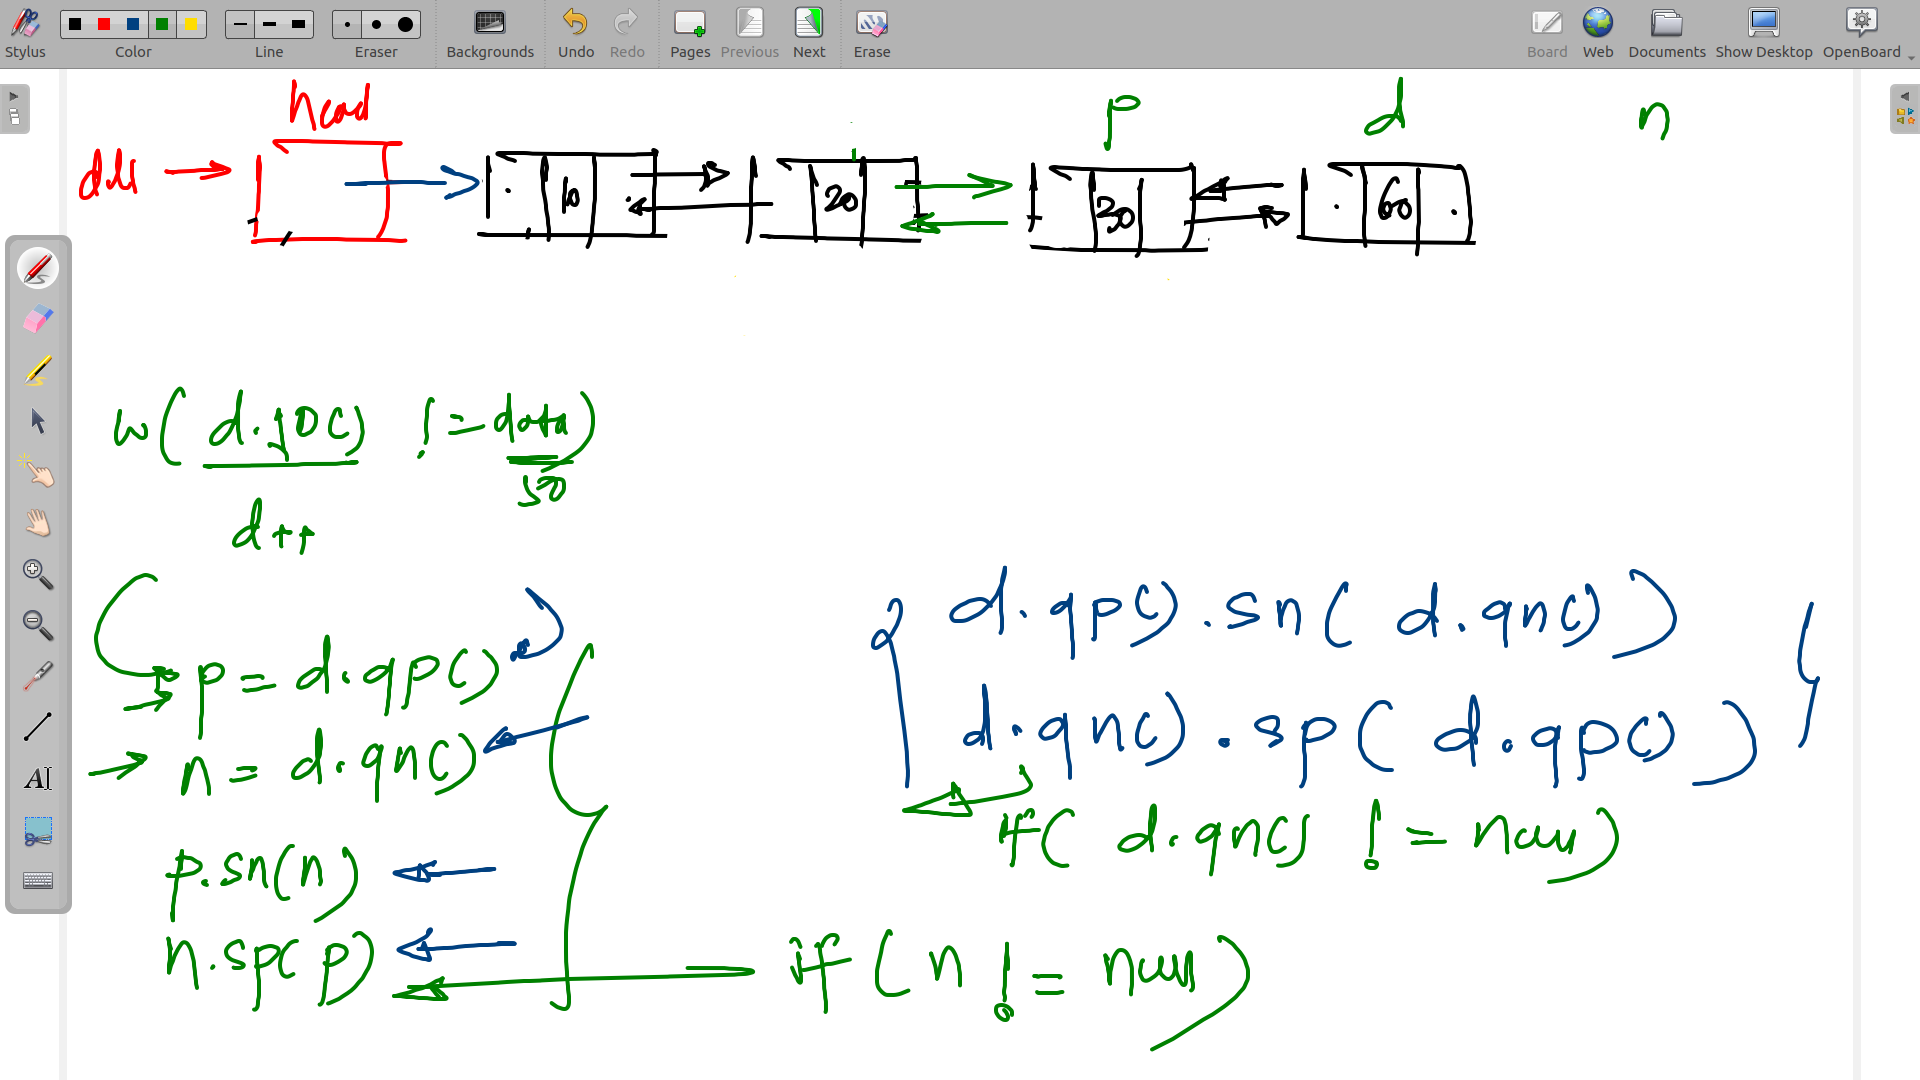 Stylus Color Line Eraser Backgrounds Undo Redo Pages Previous Next Erase Board Web Documents Show Desktop OpenBoard
head p d n
dll
10 20 30 60
w( d.gD() != data)
50
d++
p = d.gp()
n = d.gn()
p.sn(n)
n.sp(p)
d.gp().sn( d.gn() )
d.gn().sp( d.gp() )
if( d.gn() != null)
if( n != null)
AI